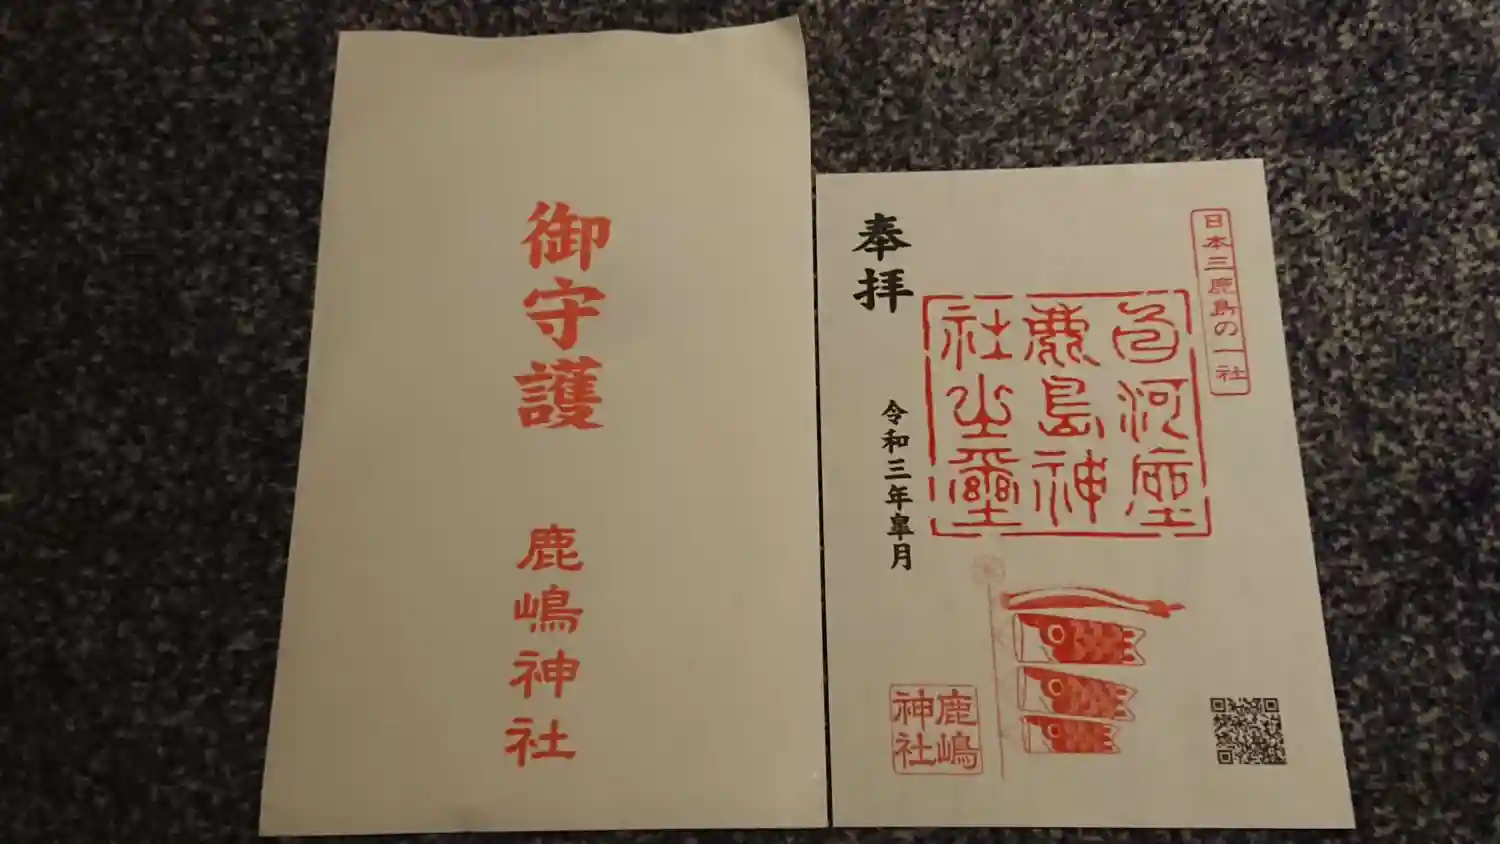 御守護
鹿嶋神社
日本三鹿島の一社
奉拝
色河座
鹿島神
社之璽
令和三年皐月
鹿嶋
神社